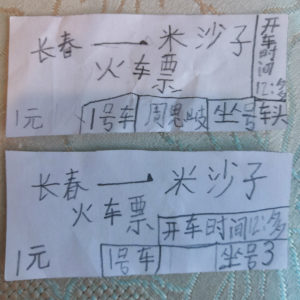 长春——米沙子
火车票
开车时间12:多
1元
1号车
周思岐
坐号车头
长春——米沙子
火车票
开车时间12:多
1元
1号车
坐号3